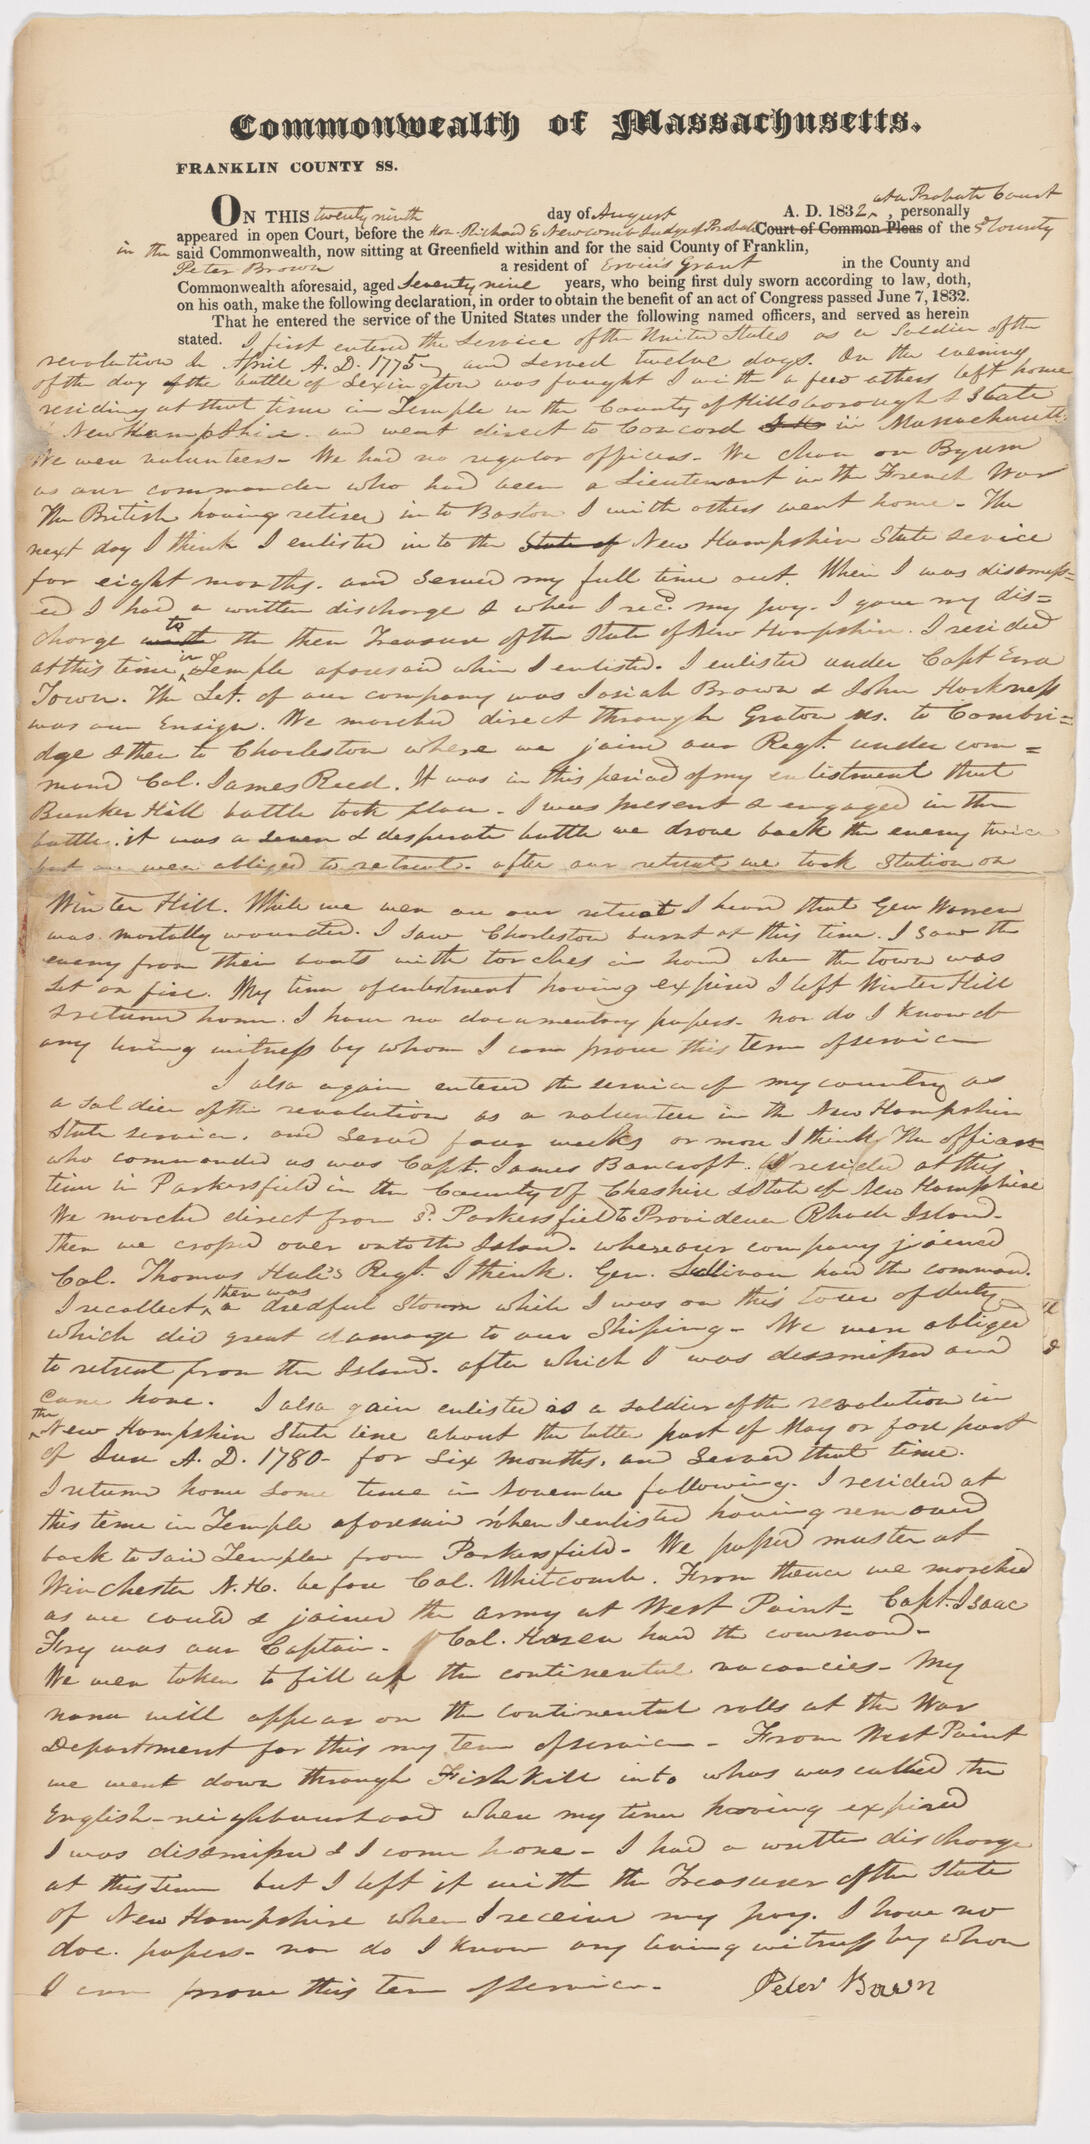 Commonwealth of Massachusetts.
FRANKLIN COUNTY SS.
at a Probate Court
ON THIS twenty ninth day of August A. D. 1832 , personally
appeared in open Court, before the Hon. Richard E Newcomb Judge of Probate Court of Common Pleas of the sd County
in the said Commonwealth, now sitting at Greenfield within and for the said County of Franklin,
Peter Brown a resident of Ervin's Grant in the County and
Commonwealth aforesaid, aged Seventy nine years, who being first duly sworn according to law, doth,
on his oath, make the following declaration, in order to obtain the benefit of an act of Congress passed June 7, 1832.
That he entered the service of the United States under the following named officers, and served as herein
stated. I first entered the service of the United States as a soldier of the
revolution In April A. D. 1775, and served twelve days. On the evening
of the day of the battle of Lexington was fought I with a few others left home
residing at that time in Temple in the County of Hillsborough & State
New Hampshire. and went direct to Concord in Massachusetts
We were volunteers - We had no regular officers - We chose on Byrum
as our commander who had been a Lieutenant in the French War
The British having retired into Boston I with others went home - The
next day I think I enlisted into the State of New Hampshire State service
for eight months. and served my full time out. When I was dismiss=
ed I had a written discharge & when I recd. my pay. I gave my dis=
charge with to the then Treasurer of the State of New Hampshire. I resided
at this time in Temple aforesaid when I enlisted. I enlisted under Capt Ezra
Town. The Let. of our company was Josiah Brown & John Harkness
was our Ensign. We marched direct through Groton Ms. to Cambri=
dge & then to Charleston where we joined our Regt. under com=
mand Col. James Reed. It was in this period of my enlistment that
Bunker Hill battle took place - I was present & engaged in the
battle. it was a severe & desperate battle we drove back the enemy twice
but we were obliged to retreat. after our retreat we took Station on
Winter Hill. While we were on our retreat I heard that Gen Warren
was mortally wounded. I saw Charleston burnt at this time. I saw the
enemy from their boats with torches in hand when the town was
Set on fire. My time of enlistment having expired I left Winter Hill
& returned home. I have no documentary papers - nor do I know of
any living witness by whom I can prove this term of service
I also again entered the service of my country as
a soldier of the revolution as a volunteer in the New Hampshire
State service. and served four weeks or more I think. The officer
who commanded us was Capt. James Bancroft. I resided at this
time in Parkersfield in the County of Cheshire & State of New Hampshire
We marched direct from sd. Parkersfield to Providence Rhode Island.
then we crossed over onto the Island - where our company joined
Col. Thomas Hale's Regt. I think. Gen. Sullivan had the command.
I recollect there was a dredful storm while I was on this tour of duty
which did great damage to our Shiping - We were obliged
to retreat from the Island - after which I was dessmissed and
came home. I also gain enlisted as a soldier of the revolution in
the New Hampshire State line about the latter part of May or fore part
of June A. D. 1780 - for six months, and served that time.
I returned home some time in November following. I resided at
this time in Temple aforesaid when I enlisted having removed
back to said Temple from Parkersfield - We passed muster at
Winchester N. H. before Col. Whitcomb. From thence we marched
as we could & joined the army at West Point - Capt. Isaac
Fry was our Captain. Col. Hazen had the command -
We were taken to fill up the continental vacancies - My
name will appear on the continental rolls at the War
Department for this my term of service - From West Point
we went down through Fish Kill into whas was called the
English-neighbourhood when my time having expired
I was dissmissed & I come home - I had a written discharge
at this time but I left it with the Treasurer of the State
of New Hampshire when I received my pay. I have no
doc. papers - nor do I know any living witness by whom
I can prove this term of service - Peter Brown